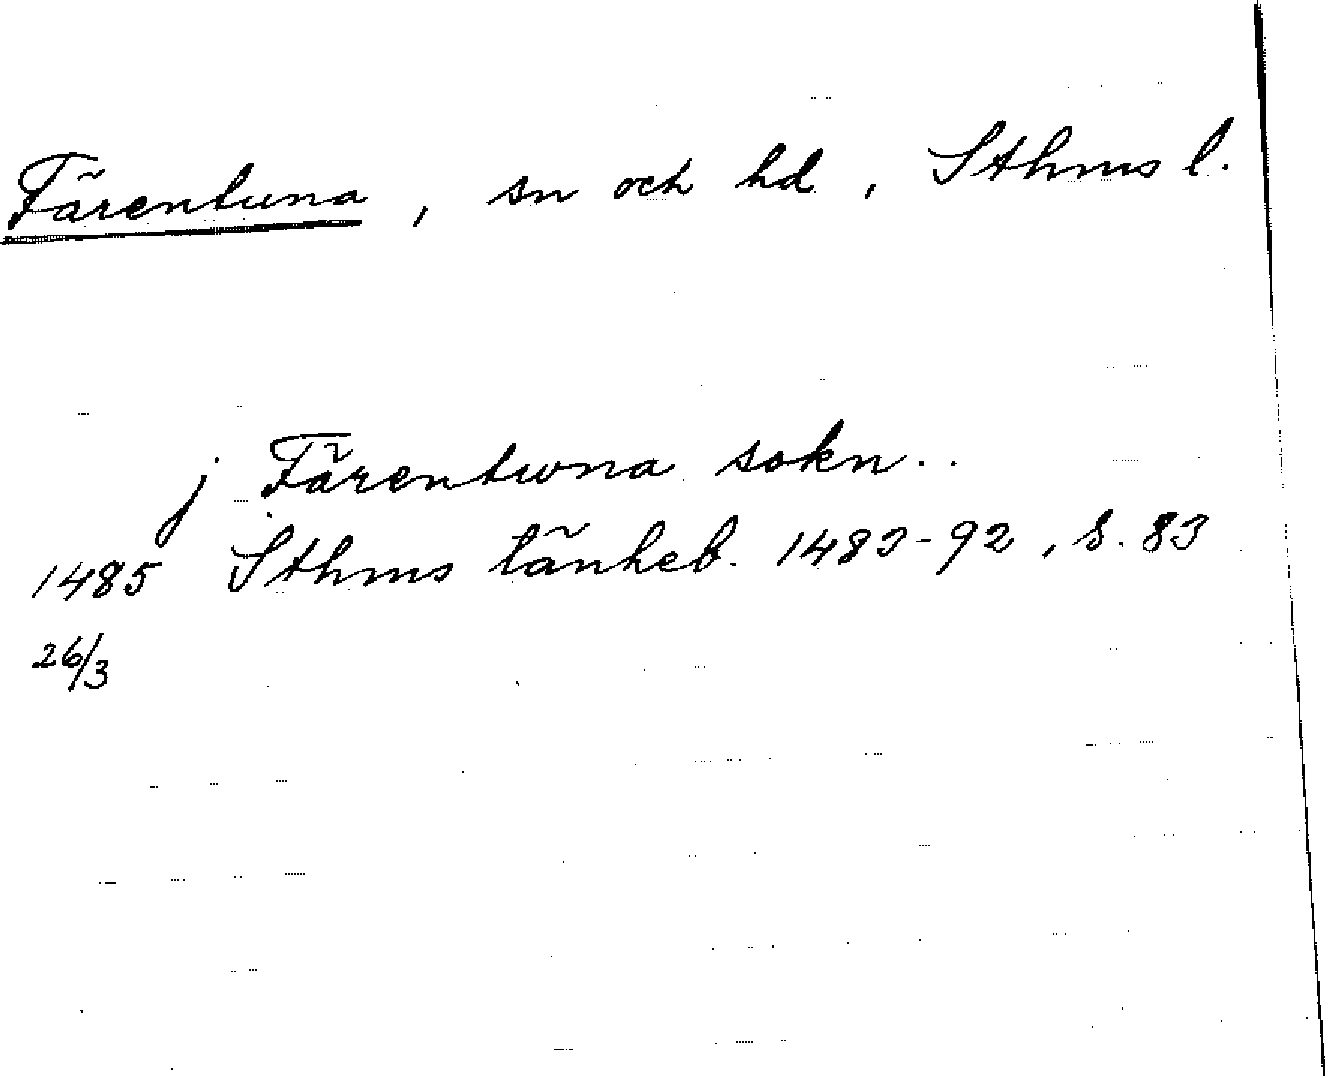 Färentuna, sn och hd, Sthms l.
j Färentuna sokn..
1485 Sthms tänkeb. 1483-92, s. 83
26/3